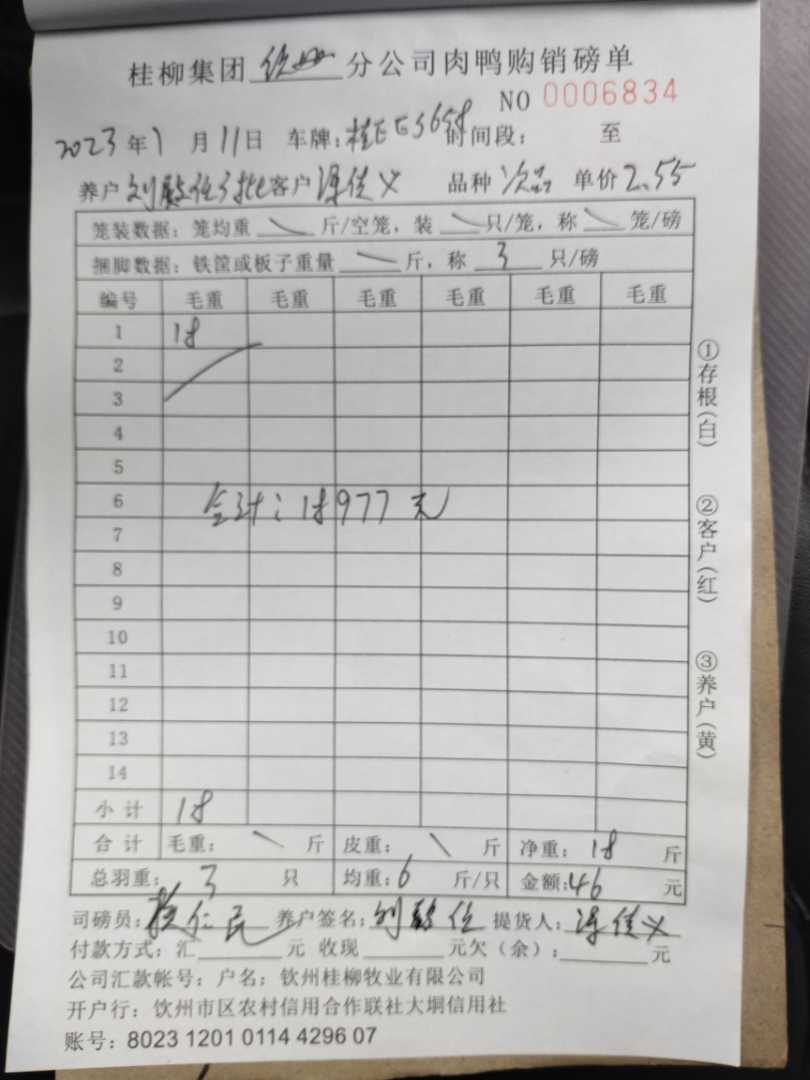 桂柳集团钦州分公司肉鸭购销磅单
NO 0006834
2023年 月11日 车牌:桂E E3658 时间段: 至
养户 刘 客户 义 品种 次品 单价2.55
笼装数据: 笼均重 \ 斤/空笼, 装 \ 只/笼, 称 \ 笼/磅
捆脚数据: 铁筐或板子重量 \ 斤, 称 3 只/磅
编号 毛重 毛重 毛重 毛重 毛重 毛重
1 18
2
3
4
5
6
合计:18977元
7
8
9
10
11
12
13
14
小计 18
合计 毛重: \ 斤 皮重: \ 斤 净重: 18 斤
总羽重: 3 只 均重:6 斤/只 金额:46 元
司磅员: 仁民 养户签名:刘 提货人: 义
付款方式:汇 元 收现 元欠(余): 元
公司汇款帐号: 户名: 钦州桂柳牧业有限公司
开户行: 钦州市区农村信用合作联社大垌信用社
账号: 8023 1201 0114 4296 07
①存根(白)
②客户(红)
③养户(黄)